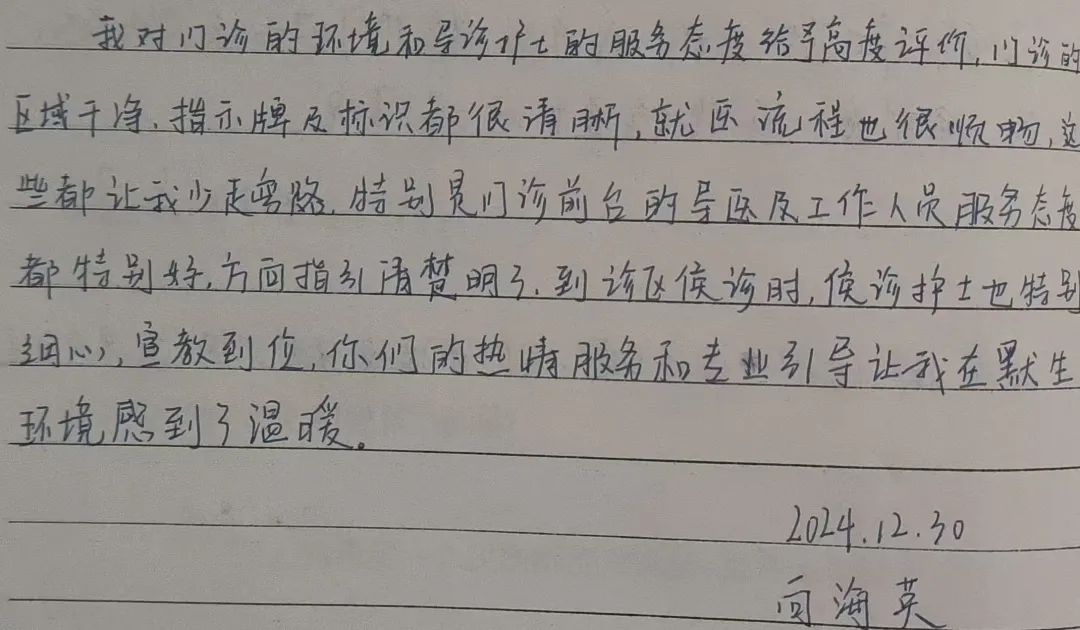 我对门诊的环境和导诊护士的服务态度给予高度评价,门诊的
区域干净,指示牌及标识都很清晰,就医流程也很顺畅,这
些都让我少走弯路,特别是门诊前台的导医及工作人员服务态度
都特别好,方向指引清楚明了,到诊区侯诊时,侯诊护士也特别
细心,宣教到位,你们的热情服务和专业引导让我在默生
环境感到了温暖。
2024.12.30
向海英